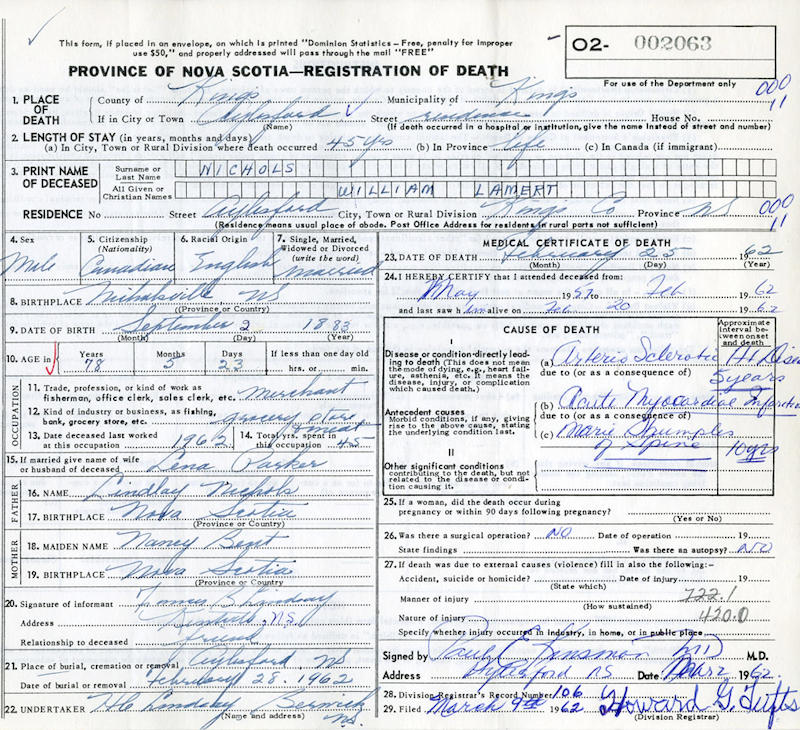 This form, if placed in an envelope, on which is printed "Dominion Statistics - Free, penalty for improper
use $50," and properly addressed will pass through the mail "FREE"
O2- 002063
PROVINCE OF NOVA SCOTIA—REGISTRATION OF DEATH
For use of the Department only
000
11
1. PLACE OF DEATH
County of Kings Municipality of Kings
If in City or Town Aylesford Street residence House No.
(Name) (If death occurred in a hospital or institution, give the name instead of street and number)
2. LENGTH OF STAY (in years, months and days)
(a) In City, Town or Rural Division where death occurred 45 yrs (b) In Province life (c) In Canada (if immigrant)
3. PRINT NAME OF DECEASED
Surname or Last Name NICHOLS
All Given or Christian Names WILLIAM LAMERT
RESIDENCE No Street Aylesford City, Town or Rural Division Kings Co Province NS
000
11
(Residence means usual place of abode. Post Office Address for residents in rural parts not sufficient)
4. Sex Male
5. Citizenship (Nationality) Canadian
6. Racial Origin English
7. Single, Married, Widowed or Divorced (write the word) Married
8. BIRTHPLACE Nicholsville, NS
(Province or Country)
9. DATE OF BIRTH September 2 1883
(Month) (Day) (Year)
10. AGE in Years 78 Months 5 Days 23 If less than one day old hrs. or min.
OCCUPATION
11. Trade, profession, or kind of work as fisherman, office clerk, sales clerk, etc. Merchant
12. Kind of industry or business, as fishing, bank, grocery store, etc. grocery store & meat
13. Date deceased last worked at this occupation 1962
14. Total yrs. spent in this occupation 45
15. If married give name of wife or husband of deceased Lena Parker
FATHER
16. NAME Lindlay Nichols
17. BIRTHPLACE Nova Scotia
(Province or Country)
MOTHER
18. MAIDEN NAME Nancy Bent
19. BIRTHPLACE Nova Scotia
(Province or Country)
20. Signature of informant Lindsay
Address N.S.
Relationship to deceased friend
21. Place of burial, cremation or removal Aylesford, NS
Date of burial or removal February 28, 1962
22. UNDERTAKER H C Lindsay Berwick N.S.
(Name and address)
MEDICAL CERTIFICATE OF DEATH
23. DATE OF DEATH February 25 1962
(Month) (Day) (Year)
24. I HEREBY CERTIFY that I attended deceased from:
May 1957 to Feb 1962
and last saw him alive on Feb 20 1962
CAUSE OF DEATH
Approximate interval between onset and death
I
Disease or condition directly leading to death (This does not mean the mode of dying, e.g., heart failure, asthenia, etc. It means the disease, injury, or complication which caused death.)
(a) Arterio Sclerotic Ht Disease
due to (or as a consequence of) 5 years
Antecedent causes
Morbid conditions, if any, giving rise to the above cause, stating the underlying condition last.
(b) Acute Myocardial Infarction
due to (or as a consequence of)
(c) Marie Strumples of Spine 10 yrs
II
Other significant conditions
contributing to the death, but not related to the disease or condition causing it.
25. If a woman, did the death occur during pregnancy or within 90 days following pregnancy?
(Yes or No)
26. Was there a surgical operation? NO Date of operation 19
State findings Was there an autopsy? NO
27. If death was due to external causes (violence) fill in also the following:-
Accident, suicide or homicide? Date of injury 19
(State which)
Manner of injury 722.1
(How sustained)
Nature of injury 420.0
Specify whether injury occurred in industry, in home, or in public place
Signed by Paul E Kinsman MD M.D.
Address Aylesford NS Date Mar 2, 1962
28. Division Registrar's Record Number 106
29. Filed March 9th 1962 Howard G. Tufts
(Division Registrar)